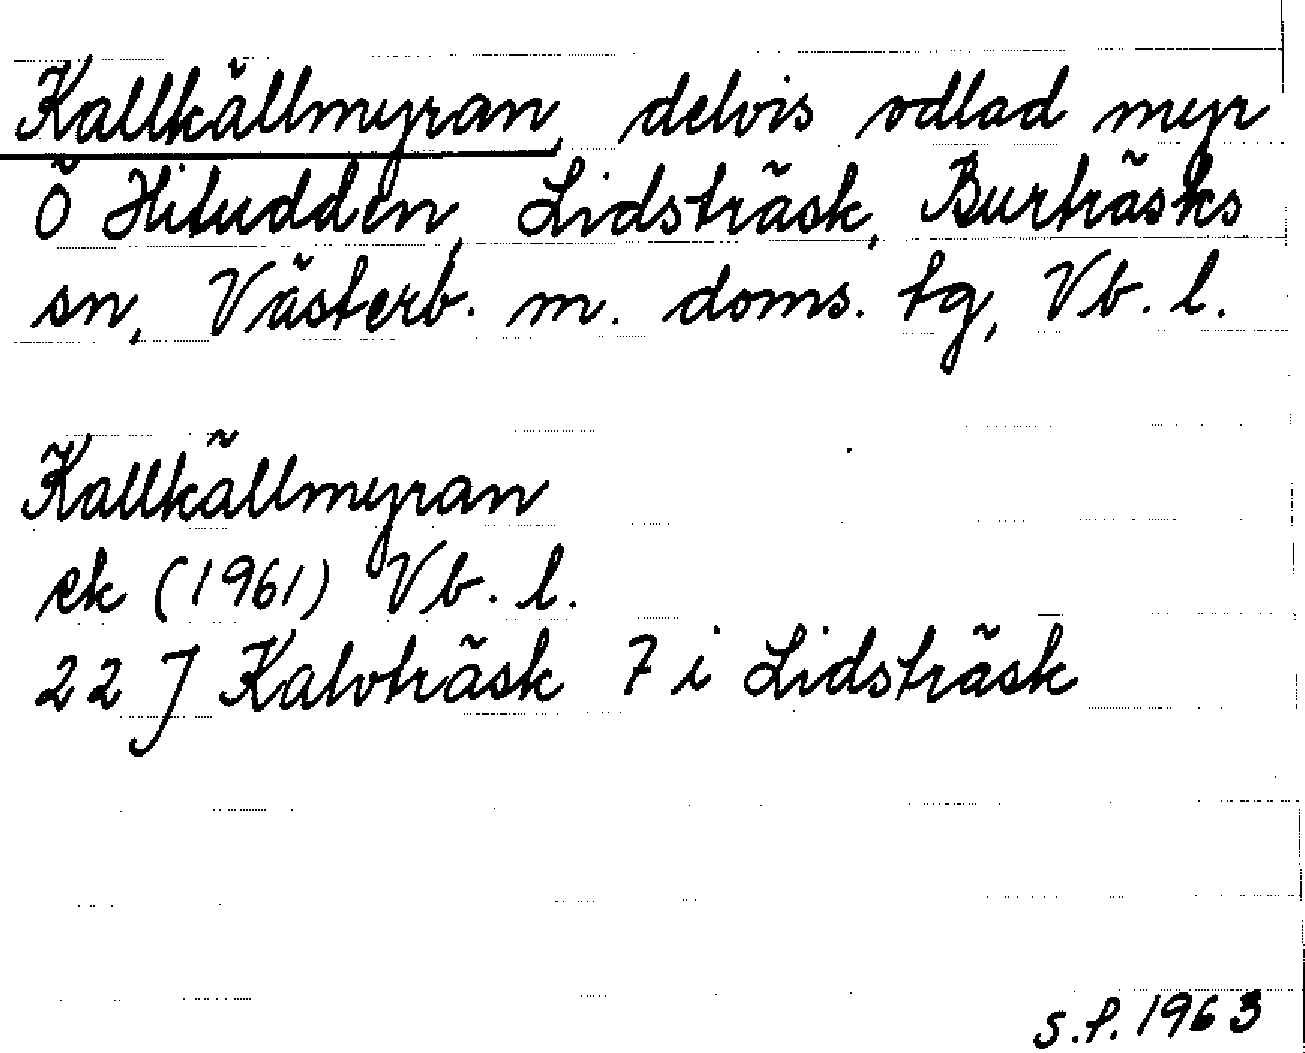 Kallkällmyran, delvis odlad myr
Ö Hiludden, Lidsträsk, Burträsks
sn, Västerb. m. doms. tg, Vb. l.
Kallkällmyran
ek (1961) Vb. l.
22 J Kalvträsk 7 i Lidsträsk
S.P. 1963